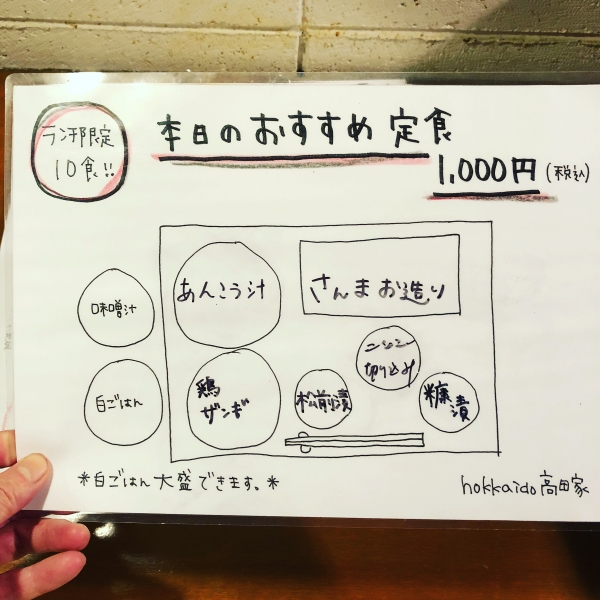 ランチ限定
10食!!
本日のおすすめ定食
1,000円(税込)
あんこう汁
さんまお造り
味噌汁
ニシン
切り込み
白ごはん
鶏
ザンギ
松前漬
糠漬
*白ごはん大盛できます。*
hokkaido高田家